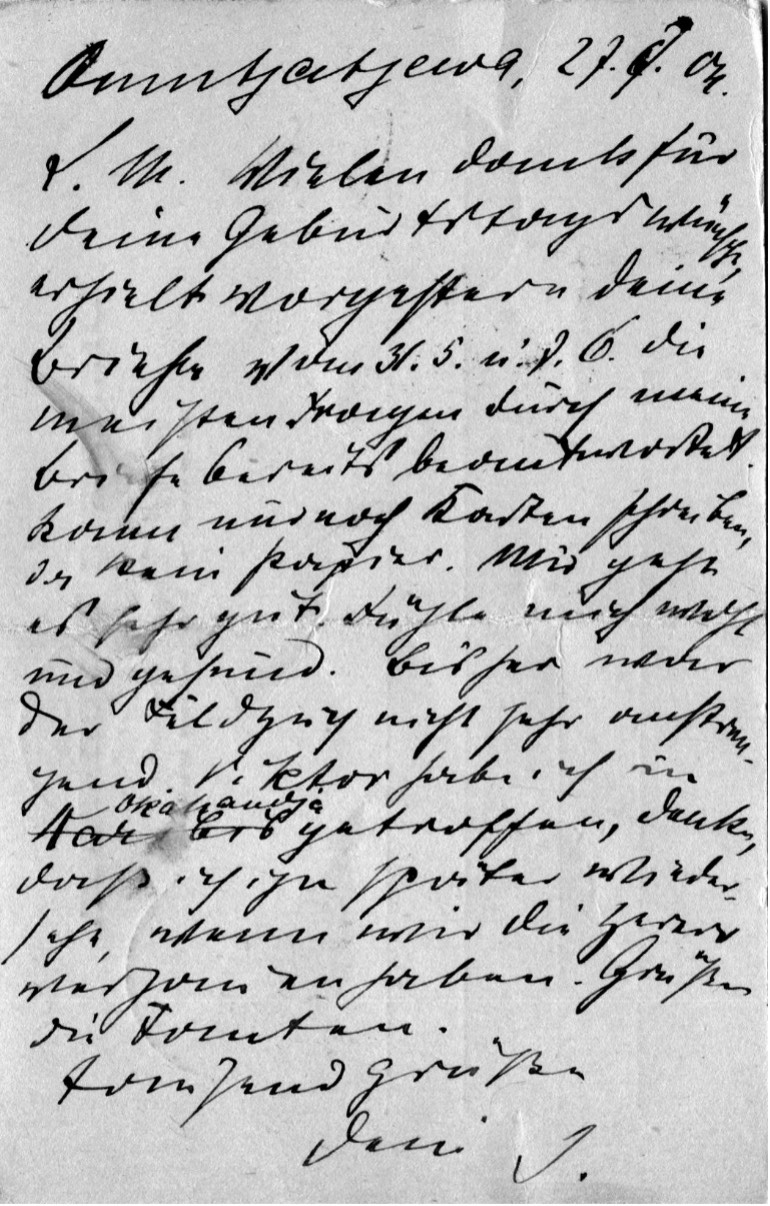 Owumtjatjewa, 27.7.04.
L. M. Vielen Dank für
deine Geburtstagswünsche,
erhielt vorgestern deine
Briefe vom 31.5. u. 7.6. die
meisten Fragen durch meine
Briefe bereits beantwortet.
Kann nur noch Karten schreiben,
da kein Papier. Mir geht
es sehr gut. Fühle mich wohl
und gesund. Bisher war
der Feldzug nicht sehr anstren-
gend. Viktor habe ich in
Okahandja
getroffen, denke,
daß ich ihn später wieder-
sehe, wenn wir die Herero
verhauen haben. Grüße
die Tanten.
Tausend Grüße
Dein